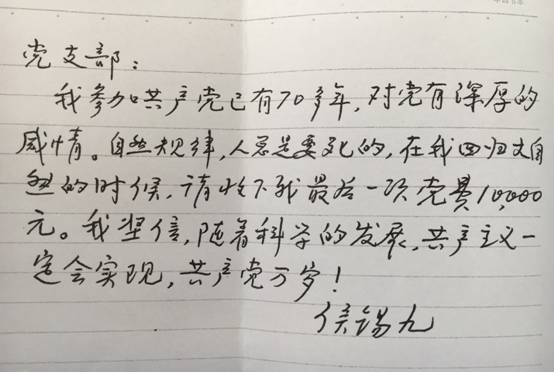 党支部：
我参加共产党已有70多年，对党有深厚的
感情。自然规律，人总是要死的，在我回归大自
然的时候，请收下我最后一项党费10,000
元。我坚信，随着科学的发展，共产主义一
定会实现，共产党万岁！
侯锡九